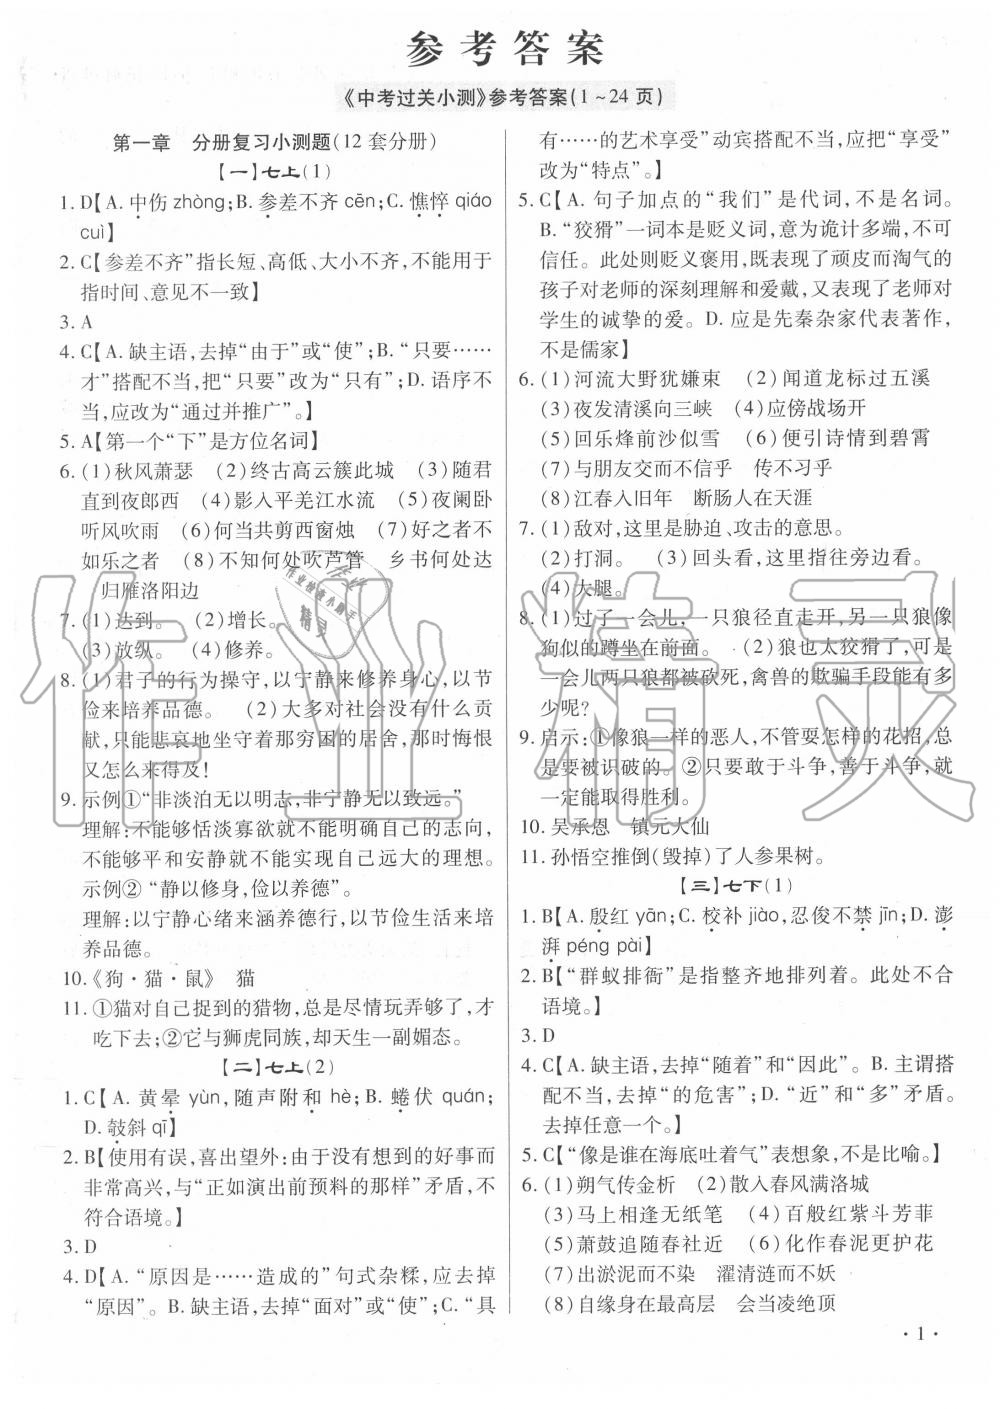 参考答案
《中考过关小测》参考答案(1~24页)
第一章 分册复习小测题(12套分册)
【一】七上(1)
1. D【A. 中伤 zhòng;B. 参差不齐 cēn;C. 憔悴 qiáo
cuì】
2. C【“参差不齐”指长短、高低、大小不齐,不能用于
指时间、意见不一致】
3. A
4. C【A. 缺主语,去掉“由于”或“使”;B. “只要……
才”搭配不当,把“只要”改为“只有”;D. 语序不
当,应改为“通过并推广”。】
5. A【第一个“下”是方位名词】
6. (1)秋风萧瑟 (2)终古高云簇此城 (3)随君
直到夜郎西 (4)影入平羌江水流 (5)夜阑卧
听风吹雨 (6)何当共剪西窗烛 (7)好之者不
如乐之者 (8)不知何处吹芦管 乡书何处达
归雁洛阳边
7. (1)达到。 (2)增长。
(3)放纵。 (4)修养。
8. (1)君子的行为操守,以宁静来修养身心,以节
俭来培养品德。 (2)大多对社会没有什么贡
献,只能悲哀地坐守着那穷困的居舍,那时悔恨
又怎么来得及!
9. 示例①“非淡泊无以明志,非宁静无以致远。”
理解:不能够恬淡寡欲就不能明确自己的志向,
不能够平和安静就不能实现自己远大的理想。
示例② “静以修身,俭以养德”。
理解:以宁静心绪来涵养德行,以节俭生活来培
养品德。
10.《狗·猫·鼠》 猫
11. ①猫对自己捉到的猎物,总是尽情玩弄够了,才
吃下去;②它与狮虎同族,却天生一副媚态。
【二】七上(2)
1. C【A. 黄晕 yùn,随声附和 hè;B. 蜷伏 quán;
D. 攲斜 qī】
2. B【使用有误,喜出望外:由于没有想到的好事而
非常高兴,与“正如演出前预料的那样”矛盾,不
符合语境。】
3. D
4. D【A. “原因是……造成的”句式杂糅,应去掉
“原因”。B. 缺主语,去掉“面对”或“使”;C. “具
有……的艺术享受”动宾搭配不当,应把“享受”
改为“特点”。】
5. C【A. 句子加点的“我们”是代词,不是名词。
B. “狡猾”一词本是贬义词,意为诡计多端,不可
信任。此处则贬义褒用,既表现了顽皮而淘气的
孩子对老师的深刻理解和爱戴,又表现了老师对
学生的诚挚的爱。D. 应是先秦杂家代表著作,
不是儒家】
6. (1)河流大野犹嫌束 (2)闻道龙标过五溪
(3)夜发清溪向三峡 (4)应傍战场开
(5)回乐烽前沙似雪 (6)便引诗情到碧霄
(7)与朋友交而不信乎 传不习乎
(8)江春入旧年 断肠人在天涯
7. (1)敌对,这里是胁迫、攻击的意思。
(2)打洞。 (3)回头看,这里指往旁边看。
(4)大腿。
8. (1)过了一会儿,一只狼径直走开,另一只狼像
狗似的蹲坐在前面。 (2)狼也太狡猾了,可是
一会儿两只狼都被砍死,禽兽的欺骗手段能有多
少呢?
9. 启示:①像狼一样的恶人,不管耍怎样的花招,总
是要被识破的。②只要敢于斗争,善于斗争,就
一定能取得胜利。
10. 吴承恩 镇元大仙
11. 孙悟空推倒(毁掉)了人参果树。
【三】七下(1)
1. B【A. 殷红 yān;C. 校补 jiào,忍俊不禁 jīn;D. 澎
湃 péng pài】
2. B【“群蚁排衙”是指整齐地排列着。此处不合
语境。】
3. D
4. C【A. 缺主语,去掉“随着”和“因此”。B. 主谓搭
配不当,去掉“的危害”;D. “近”和“多”矛盾。
去掉任意一个。】
5. C【“像是谁在海底吐着气”表想象,不是比喻。】
6. (1)朔气传金柝 (2)散入春风满洛城
(3)马上相逢无纸笔 (4)百般红紫斗芳菲
(5)萧鼓追随春社近 (6)化作春泥更护花
(7)出淤泥而不染 濯清涟而不妖
(8)自缘身在最高层 会当凌绝顶
·1·
作业精灵
作业检查小助手
精灵